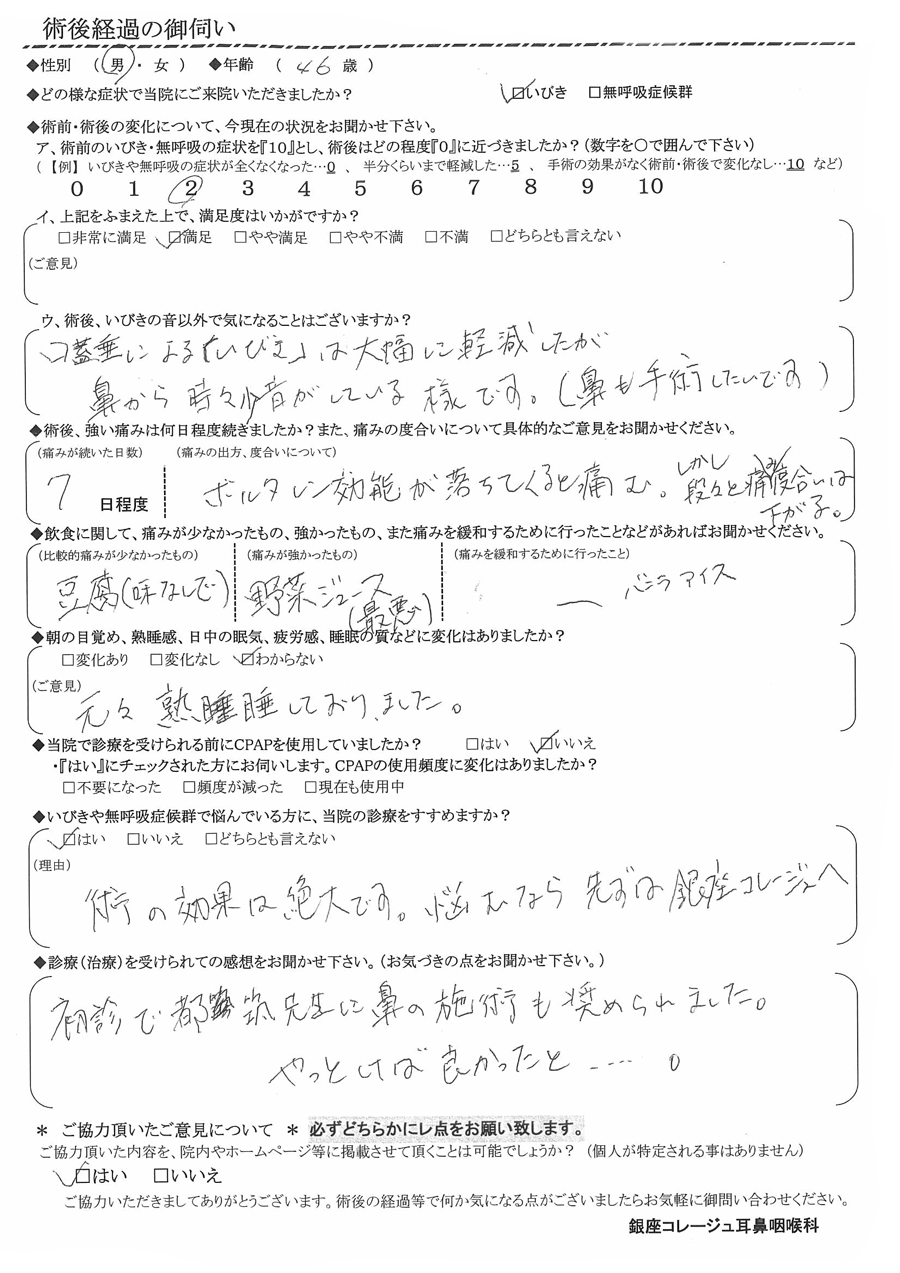 術後経過の御伺い
◆性別 （ 男 ・ 女 ） ◆年齢 （ 46 歳 ）
◆どの様な症状で当院にご来院いただきましたか？ ☑いびき □無呼吸症候群
◆術前・術後の変化について、今現在の状況をお聞かせ下さい。
ア、術前のいびき・無呼吸の症状を『10』とし、術後はどの程度『0』に近づきましたか？（数字を○で囲んで下さい）
（【例】いびきや無呼吸の症状が全くなくなった…0 、 半分くらいまで軽減した…5 、 手術の効果がなく術前・術後で変化なし…10 など）
0 1 2 3 4 5 6 7 8 9 10
イ、上記をふまえた上で、満足度はいかがですか？
□非常に満足 ☑満足 □やや満足 □やや不満 □不満 □どちらとも言えない
（ご意見）
ウ、術後、いびきの音以外で気になることはございますか？
口蓋垂による「いびき」は大幅に軽減したが
鼻から時々少音がしている様です。（鼻も手術したいです）
◆術後、強い痛みは何日程度続きましたか？また、痛みの度合いについて具体的なご意見をお聞かせください。
（痛みが続いた日数） （痛みの出方、度合いについて）
7 日程度 ボルタレン効能が落ちてくると痛む。しかし
段々と痛み度合いは
下がる。
◆飲食に関して、痛みが少なかったもの、強かったもの、また痛みを緩和するために行ったことなどがあればお聞かせください。
（比較的痛みが少なかったもの） （痛みが強かったもの） （痛みを緩和するために行ったこと）
豆腐（味なしで） 野菜ジュース（最悪） ー バニラアイス
◆朝の目覚め、熟睡感、日中の眠気、疲労感、睡眠の質などに変化はありましたか？
□変化あり □変化なし ☑わからない
（ご意見）
元々 熟睡しておりました。
◆当院で診療を受けられる前にCPAPを使用していましたか？ □はい ☑いいえ
・『はい』にチェックされた方にお伺いします。CPAPの使用頻度に変化はありましたか？
□不要になった □頻度が減った □現在も使用中
◆いびきや無呼吸症候群で悩んでいる方に、当院の診療をすすめますか？
☑はい □いいえ □どちらとも言えない
（理由）
術の効果は絶大です。悩むなら 先ずは銀座コレージュへ
◆診療（治療）を受けられての感想をお聞かせ下さい。（お気づきの点をお聞かせ下さい。）
初診で都筑先生に鼻の施術も奨められました。
やっとけば良かったと……。
＊ ご協力頂いたご意見について ＊ 必ずどちらかにレ点をお願い致します。
ご協力頂いた内容を、院内やホームページ等に掲載させて頂くことは可能でしょうか？ （個人が特定される事はありません）
☑はい □いいえ
ご協力いただきましてありがとうございます。術後の経過等で何か気になる点がございましたらお気軽に御問い合わせください。
銀座コレージュ耳鼻咽喉科